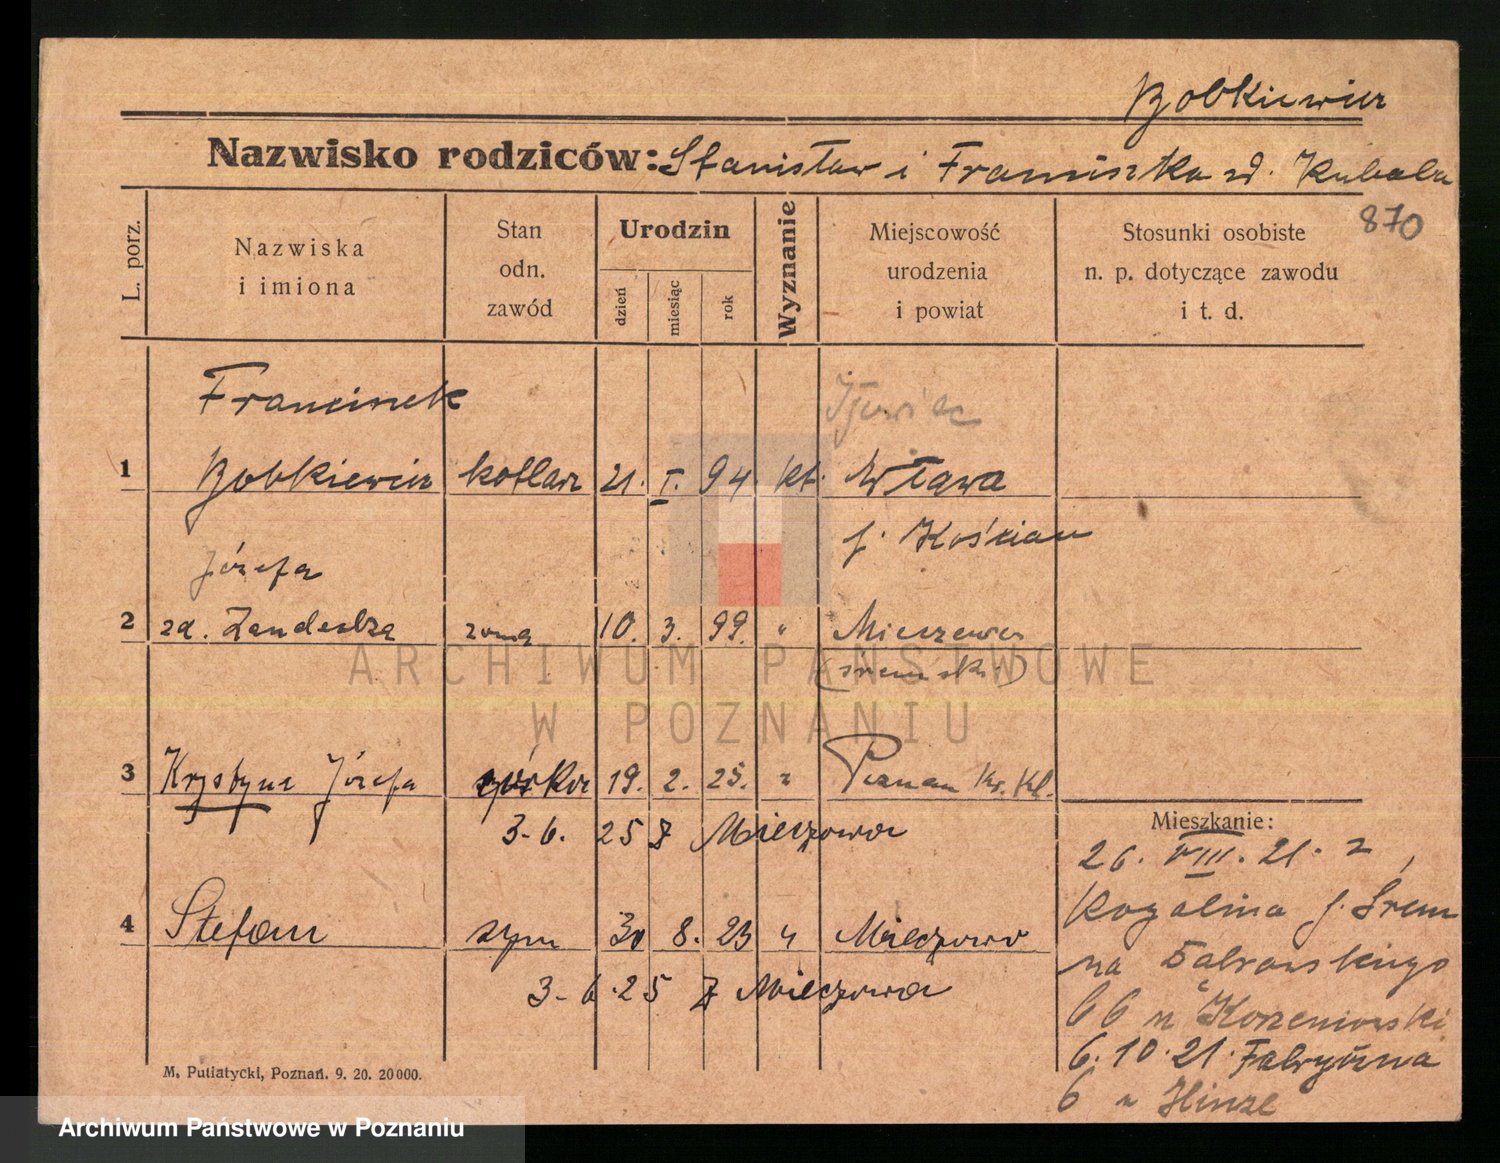 Bobkiewicz
Nazwisko rodziców: Stanisław i Franciszka zd. Kubala
870
L. porz.
Nazwiska i imiona
Stan odn. zawód
Urodzin
dzień
miesiąc
rok
Wyznanie
Miejscowość urodzenia i powiat
Stosunki osobiste n. p. dotyczące zawodu i t. d.
Franciszek
1 Bobkiewicz kotlarz 21. I. 94 kt. Wława
p. Kościan
Józefa
2 zd. żona 10. 3. 99. " Mieczewo
(śremski)
3 Krystyna Józefa córka 19. 2. 25. " Poznań
3. 6. 25 z Mieczewa
4 Stefan syn 30 8. 23 " Mieczewo
3. 6. 25 z Mieczewa
Mieszkanie:
26. VIII. 21. z
Rogalina p. Śrem
na Dąbrowskiego
66 u Korzeniowski
6. 10. 21. Fabryczna
6 u Hinze
M. Putiatycki, Poznań. 9. 20. 20000.
ARCHIWUM PAŃSTWOWE
W POZNANIU
Archiwum Państwowe w Poznaniu